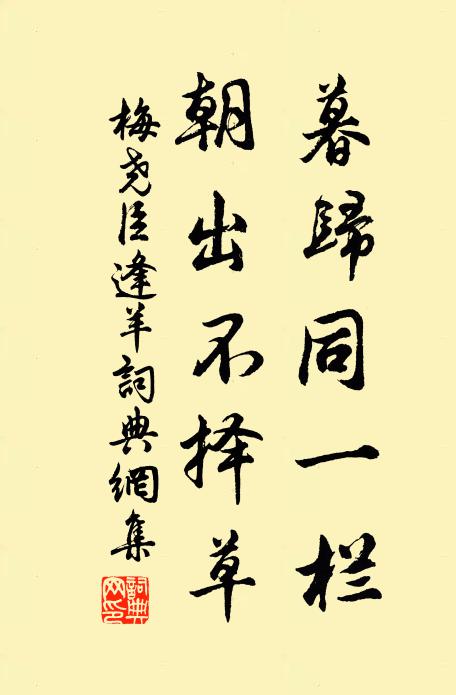 暮歸同一栏
朝出不择草
梅尧臣逢羊詞典網集
詞典网印